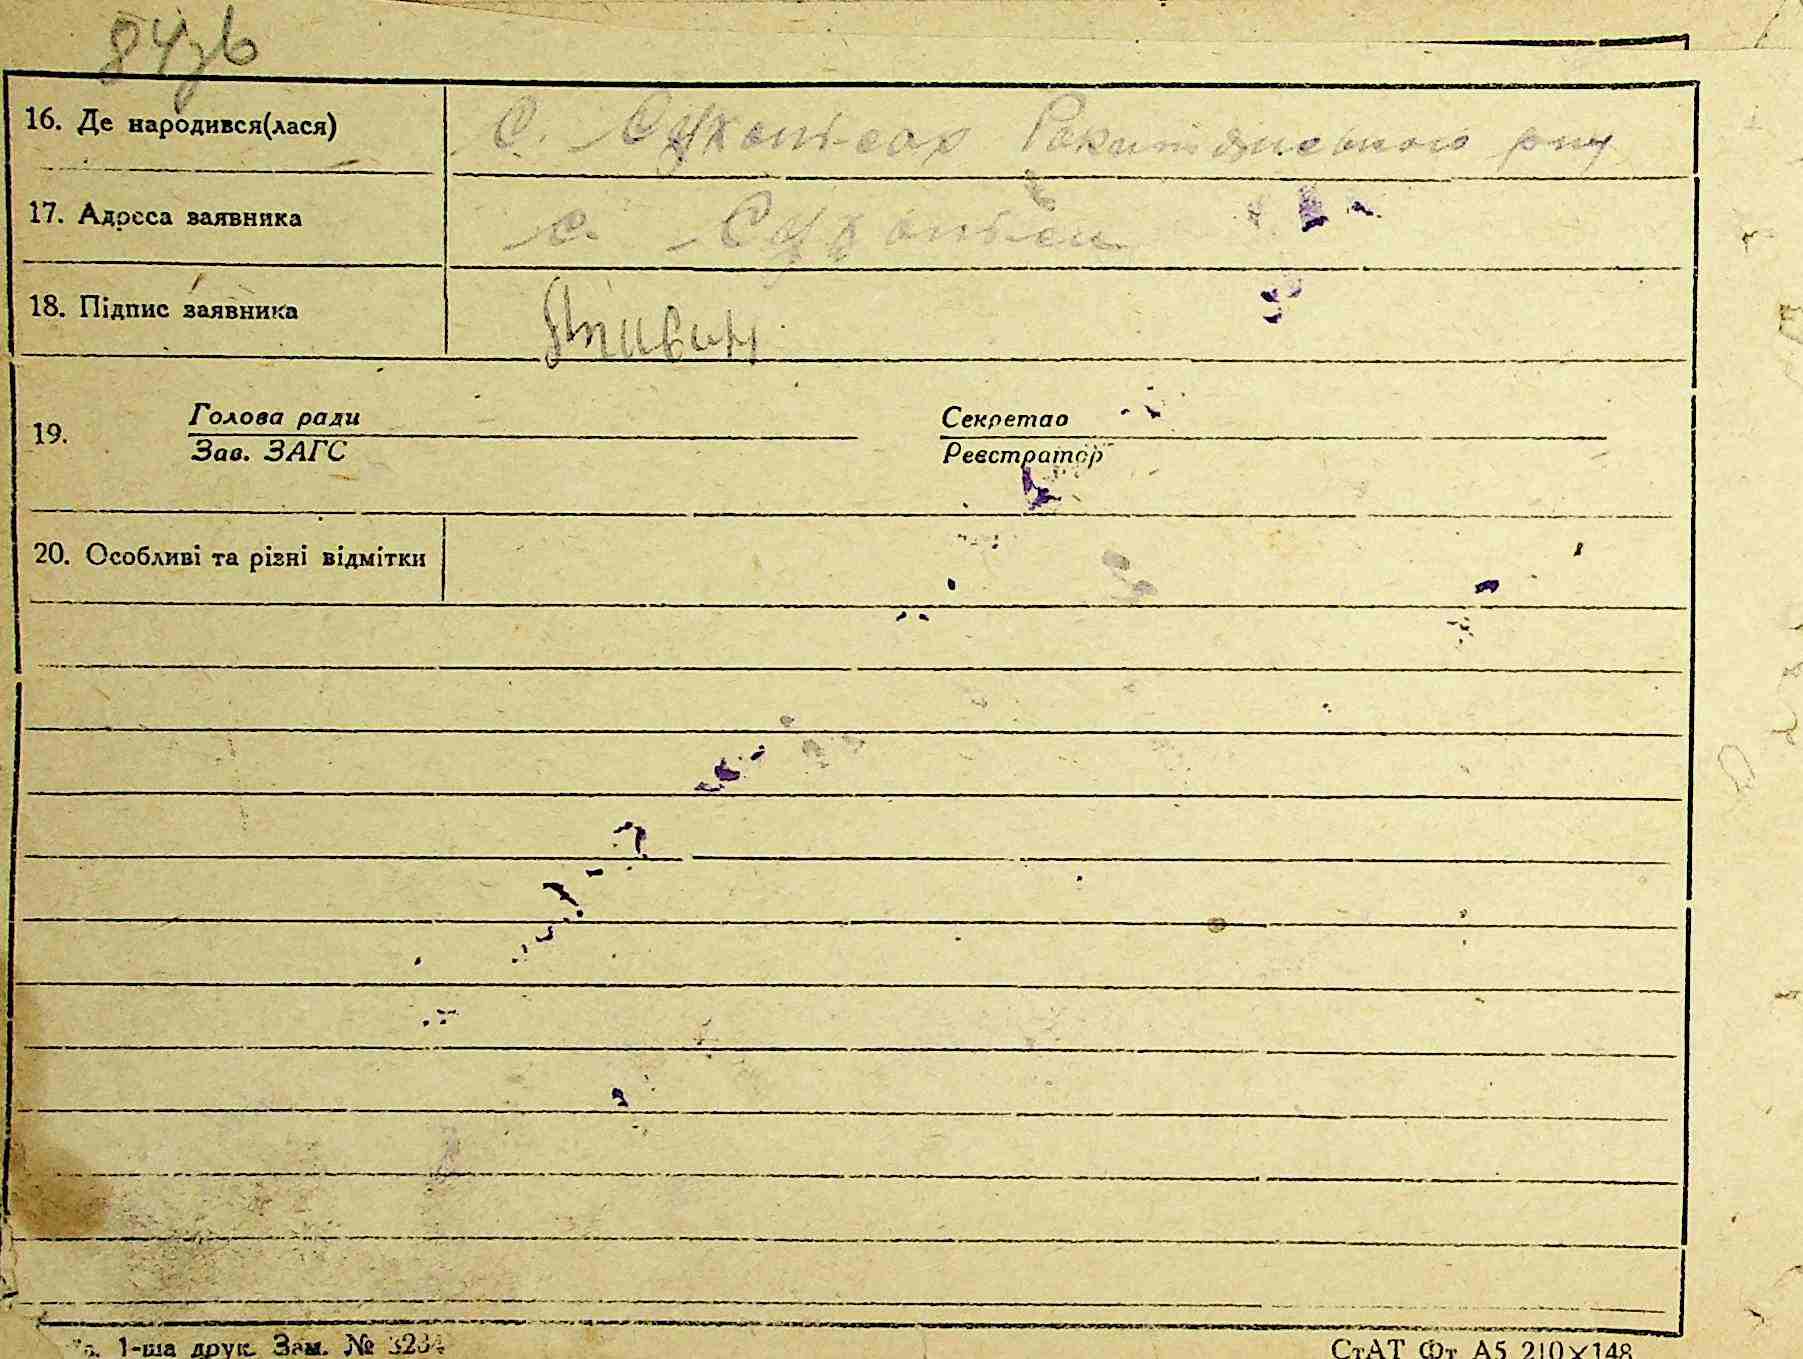 84зв
16. Де народився(лася) с. Ромитянського р-ну
17. Адреса заявника с.
18. Підпис заявника
19. Голова ради Секретар
Зав. ЗАГС Реєстратор
20. Особливі та різні відмітки
1-ша друк. Зам. № 3234 СтАТ Фт А5 210×148